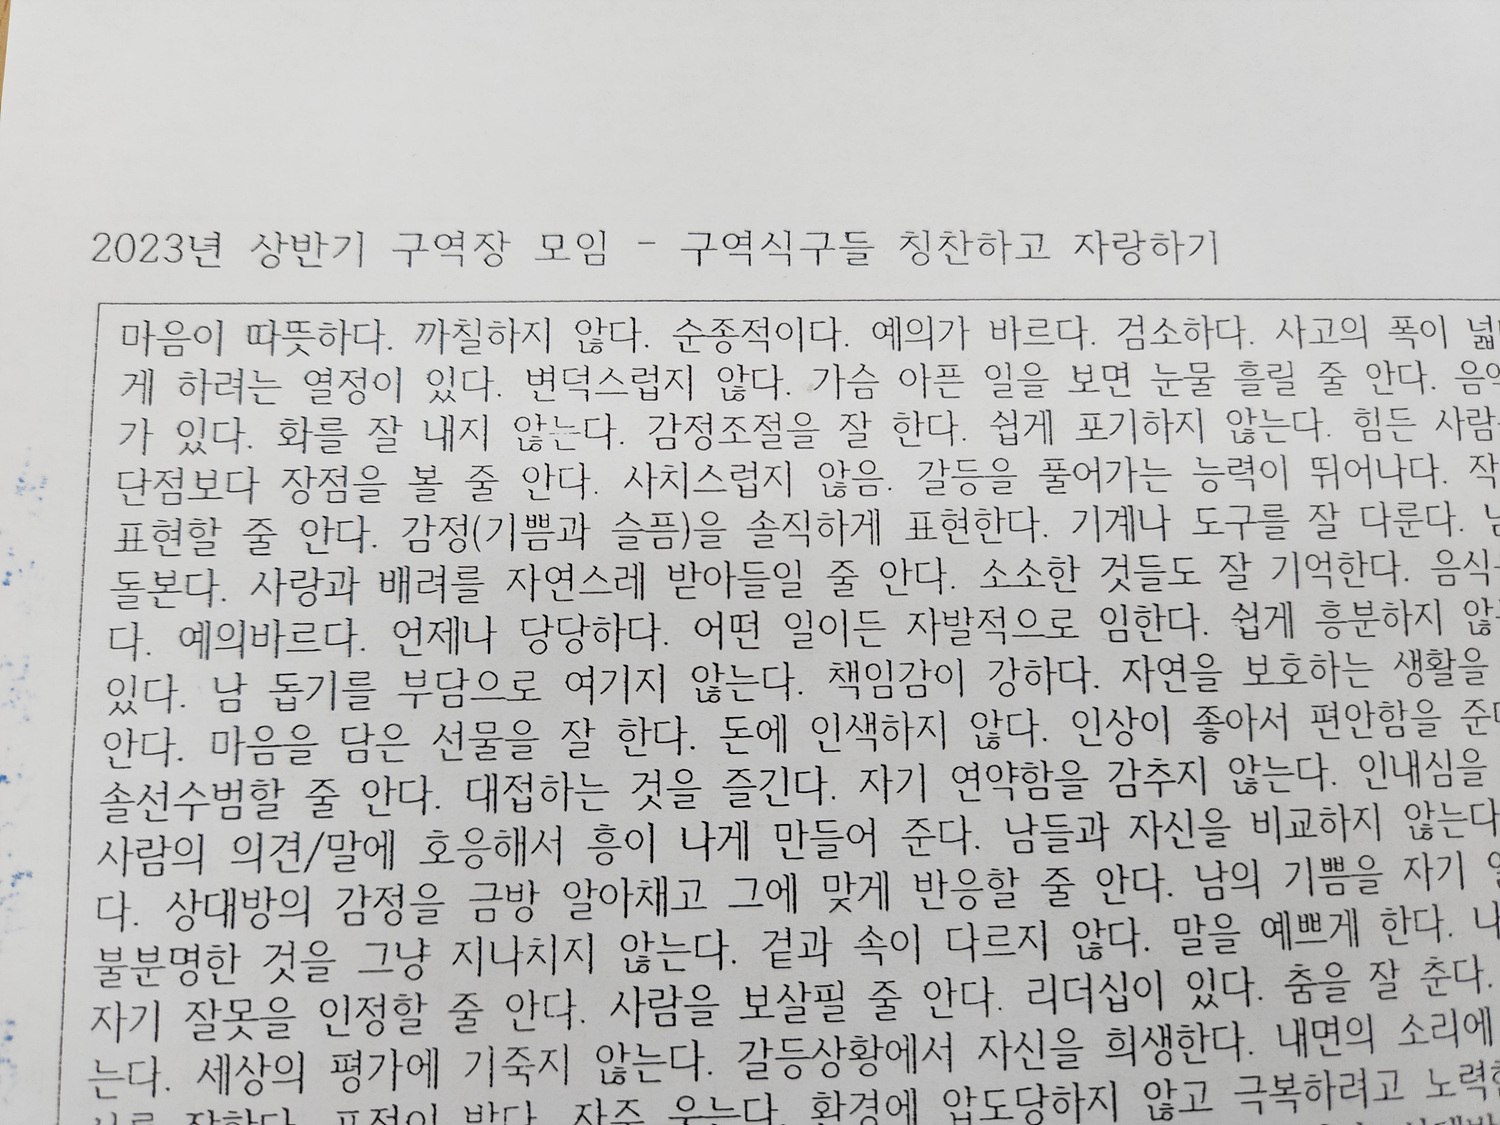 2023년 상반기 구역장 모임 - 구역식구들 칭찬하고 자랑하기
마음이 따뜻하다. 까칠하지 않다. 순종적이다. 예의가 바르다. 검소하다. 사고의 폭이
게 하려는 열정이 있다. 변덕스럽지 않다. 가슴 아픈 일을 보면 눈물 흘릴 줄 안다.
가 있다. 화를 잘 내지 않는다. 감정조절을 잘 한다. 쉽게 포기하지 않는다. 힘든 사람
단점보다 장점을 볼 줄 안다. 사치스럽지 않음. 갈등을 풀어가는 능력이 뛰어나다. 작
표현할 줄 안다. 감정(기쁨과 슬픔)을 솔직하게 표현한다. 기계나 도구를 잘 다룬다.
돌본다. 사랑과 배려를 자연스레 받아들일 줄 안다. 소소한 것들도 잘 기억한다. 음식
다. 예의바르다. 언제나 당당하다. 어떤 일이든 자발적으로 임한다. 쉽게 흥분하지 않
있다. 남 돕기를 부담으로 여기지 않는다. 책임감이 강하다. 자연을 보호하는 생활을
안다. 마음을 담은 선물을 잘 한다. 돈에 인색하지 않다. 인상이 좋아서 편안함을 준다
솔선수범할 줄 안다. 대접하는 것을 즐긴다. 자기 연약함을 감추지 않는다. 인내심을
사람의 의견/말에 호응해서 흥이 나게 만들어 준다. 남들과 자신을 비교하지 않는다
다. 상대방의 감정을 금방 알아채고 그에 맞게 반응할 줄 안다. 남의 기쁨을 자기
불분명한 것을 그냥 지나치지 않는다. 겉과 속이 다르지 않다. 말을 예쁘게 한다.
자기 잘못을 인정할 줄 안다. 사람을 보살필 줄 안다. 리더십이 있다. 춤을 잘 춘다.
는다. 세상의 평가에 기죽지 않는다. 갈등상황에서 자신을 희생한다. 내면의 소리에
잘한다. 표정이 밝다. 자주 웃는다. 환경에 압도당하지 않고 극복하려고